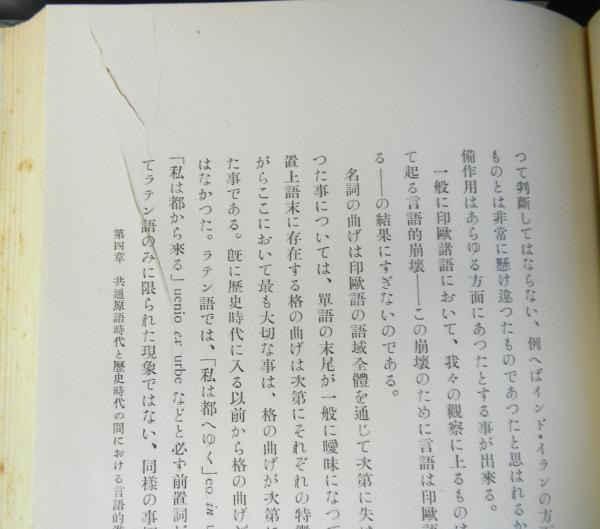 つて判斷してはならない、例へばインド・イランの方
ものとは非常に懸け違つたものであつたと思はれるか
備作用はあらゆる方面にあつたとする事が出來る。
一般に印歐諸語において、我々の觀察に上るものは
て起る言語的崩壞——この崩壞のために言語は印歐語
る——の結果にすぎないのである。
名詞の曲げは印歐語の語域全體を通じて次第に失は
つた事については、單語の末尾が一般に曖昧になつて
置上語末に存在する格の曲げは次第にそれぞれの特徴
がらここにおいて最も大切な事は、格の曲げが次第に
た事である。旣に歷史時代に入る以前から格の曲げが
はなかつた。ラテン語では、「私は都へゆく」eo in u
「私は都から來る」uenio ex urbe などと必ず前置詞が
てラテン語のみに限られた現象ではない、同樣の事
第四章 共通原語時代と歷史時代の間における言語的